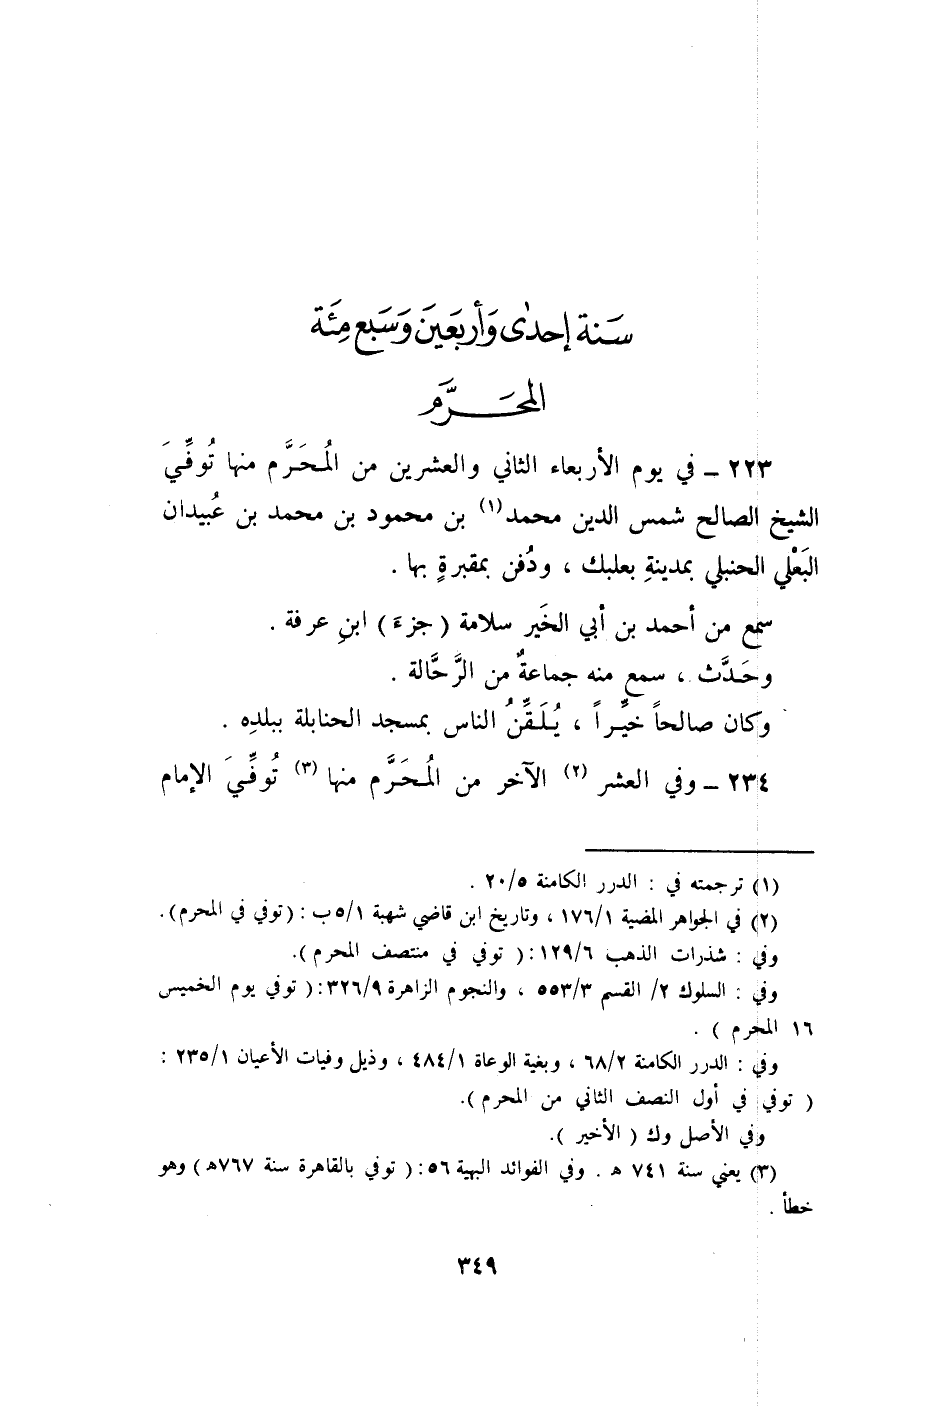 سَنة إحدىٰ وَأربَعينَ وَسَبع مِئَة
المحَرَّم
٢٢٣ ـ في يوم الأربعاء الثاني والعشرين من المُحَرَّم منها تُوفِّيَ
الشيخ الصالح شمس الدين محمد(١) بن محمود بن محمد بن عُبيدان
البَعْلي الحنبلي بمدينةِ بعلبك ، ودُفن بمقبرةٍ بها .
سمع من أحمد بن أبي الخَير سلامة ( جزءَ ) ابنِ عرفة .
وحَدَّث ، سمع منه جماعةٌ من الرَّحَّالة .
وكان صالحاً خيِّراً ، يُلَقِّنُ الناس بمسجد الحنابلة ببلدِه .
٢٣٤ ـ وفي العشر (٢) الآخر من المُحَرَّم منها (٣) تُوفِّيَ الإمام
(١) ترجمته في : الدرر الكامنة ٢٠/٥ .
(٢) في الجواهر المضية ١٧٦/١ ، وتاريخ ابن قاضي شهبة ٥/١ب : (توفي في المحرم).
وفي : شذرات الذهب ١٢٩/٦ :( توفي في منتصف المحرم ).
وفي : السلوك ٢/ القسم ٥٥٣/٣ ، والنجوم الزاهرة ٣٢٦/٩ :( توفي يوم الخميس
١٦ المحرم ) .
وفي : الدرر الكامنة ٦٨/٢ ، وبغية الوعاة ٤٨٤/١ ، وذيل وفيات الأعيان ٢٣٥/١ :
( توفي في أول النصف الثاني من المحرم ).
وفي الأصل وك ( الأخير ).
(٣) يعني سنة ٧٤١ هـ . وفي الفوائد البهية ٥٦ :( توفي بالقاهرة سنة ٧٦٧هـ ) وهو
خطأ .
٣٤٩